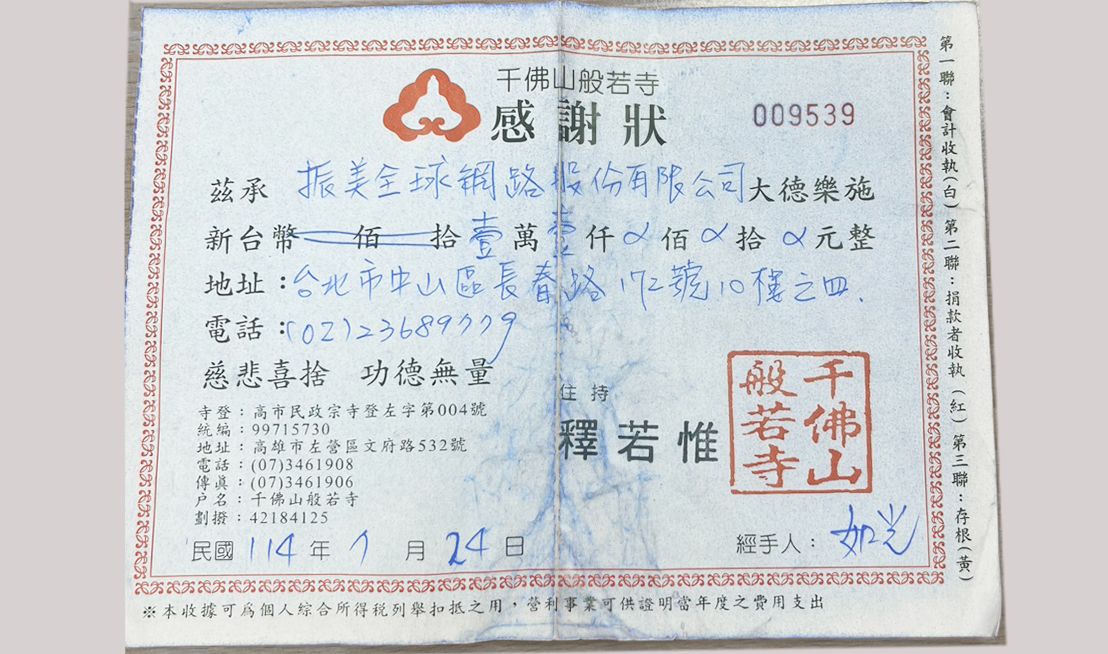 千佛山般若寺
感謝狀
009539
茲承 振美全球網路股份有限公司 大德樂施
新台幣 佰 拾 壹 萬 壹 仟 α 佰 α 拾 α 元整
地址：台北市中山區長春路172號10樓之四.
電話：(02)23689779
慈悲喜捨 功德無量
寺登：高市民政宗寺登左字第004號
統編：99715730
地址：高雄市左營區文府路532號
電話：(07)3461908
傳真：(07)3461906
戶名：千佛山般若寺
劃撥：42184125
住持
釋若惟
千佛山
般若寺
民國 114 年 7 月 24 日
經手人：如光
※本收據可為個人綜合所得稅列舉扣抵之用，營利事業可供證明當年度之費用支出
第一聯：會計收執(白) 第二聯：捐款者收執(紅) 第三聯：存根(黃)